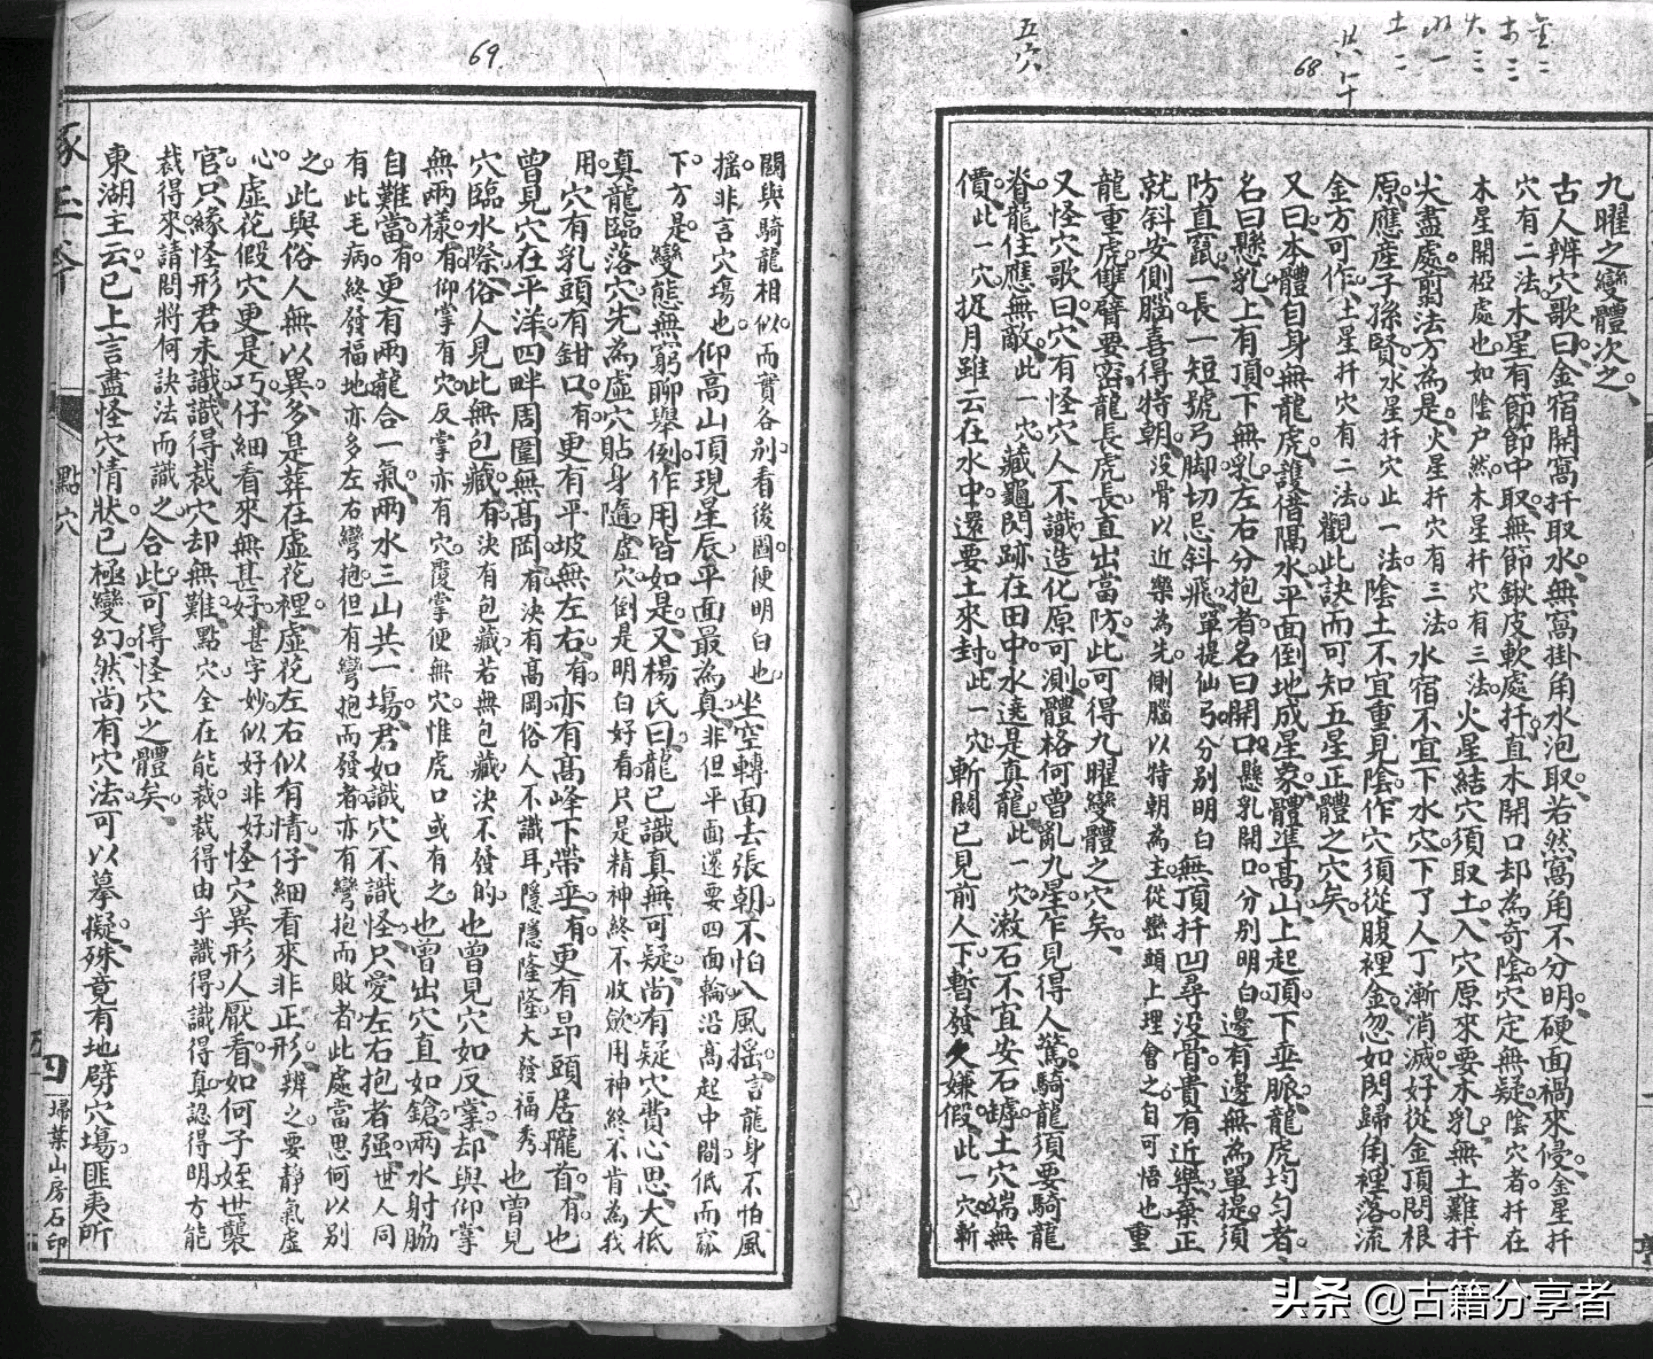 五穴
68
共十
土二
水一
火三
木三
金二
九曜之變體次之
古人辨穴歌曰金宿開窩扦取水無窩掛角水泡取若然窩角不分明硬面禍來侵金星扦
穴有二法木星有節節中取無節鍬皮軟處扦直木開口却為奇陰穴定無疑陰穴者扦在
本星開椏處也如陰户然木星扦穴有三法火星結穴須取土入穴原來要木乳無土難扦
尖盡處剪法方為是火星扦穴有三法水宿不宜下水穴下了人丁漸消滅好從金頂問根
原應産子孫賢水星扦穴止一法陰土不宜重見陰作穴須從腹裡金忽如閃歸角裡落流
金方可作土星扦穴有二法觀此訣而可知五星正體之穴矣
又曰本體自身無龍虎護借隔水平面倒地成星象體準高山上起頂下垂脈龍虎均勻者
名曰懸乳上有頂下無乳左右分抱者名曰開口懸乳開口分別明白邊有邊無為單提須
防直竄一長一短號弓脚切忌斜飛單提仙弓分別明白無頂扦凹尋没骨貴有近樂棄正
就斜安側腦喜得特朝没骨以近樂為先側腦以特朝為主從巒頭上理會之自可悟也重
龍重虎雙臂要密龍長虎長直出當防此可得九曜變體之穴矣
又怪穴歌曰穴有怪穴人不識造化原可測體格何曾亂九星乍見得人驚騎龍須要騎龍
脊龍住應無敵此一穴藏龜閃跡在田中水遶是真龍此一穴漱石不宜安石罅土穴端無
價此一穴捉月雖云在水中還要土來封此一穴斬關已見前人下暫發久嫌假此一穴斬
69.
關與騎龍相似而實各別看後圖便明白也坐空轉面去張朝不怕八風搖言龍身不怕風
搖非言穴塲也仰高山頂現星辰平面最為真非但平面還要四面輪沿高起中間低而窩
下方是變態無窮聊舉例作用皆如是又楊氏曰龍已識真無可疑尚有疑穴費心思大抵
真龍臨落穴先為虛穴貼身隨虛穴倒是明白好看只是精神終不收斂用神終不肯為我
用穴有乳頭有鉗口有更有平坡無左右有亦有高峰下帶垂有更有昂頭居隴首有也
曾見穴在平洋四畔周圍無髙岡有決有高岡俗人不識耳隱隱隆隆大發福秀也曾見
穴臨水際俗人見此無包藏有決有包藏若無包藏決不發的也曾見穴如反掌却與仰掌
無兩樣有仰掌有穴反掌亦有穴覆掌便無穴惟虎口或有之也曾出穴直如鎗兩水射脇
自難當有更有兩龍合一氣兩水三山共一塲君如識穴不識怪只愛左右抱者强世人同
有此毛病終發福地亦多左右彎抱但有彎抱而發者亦有彎抱而敗者此處當思何以別
之此與俗人無以異多是葬在虛花裡虛花左右似有情仔細看來非正形辨之要靜氣虛
心虛花假穴更是巧仔細看來無甚好甚字妙似好非好怪穴異形人厭看如何子姪世襲
官只緣怪形君未識識得裁穴却無難點穴全在能裁裁得由乎識得識得真認得明方能
裁得來請問將何訣法而識之合此可得怪穴之體矣
東湖主云已上言盡怪穴情狀已極變幻然尚有穴法可以摹擬殊竟有地劈穴塲匪夷所
點穴
四
埽葉山房石印
头条 @古籍分享者